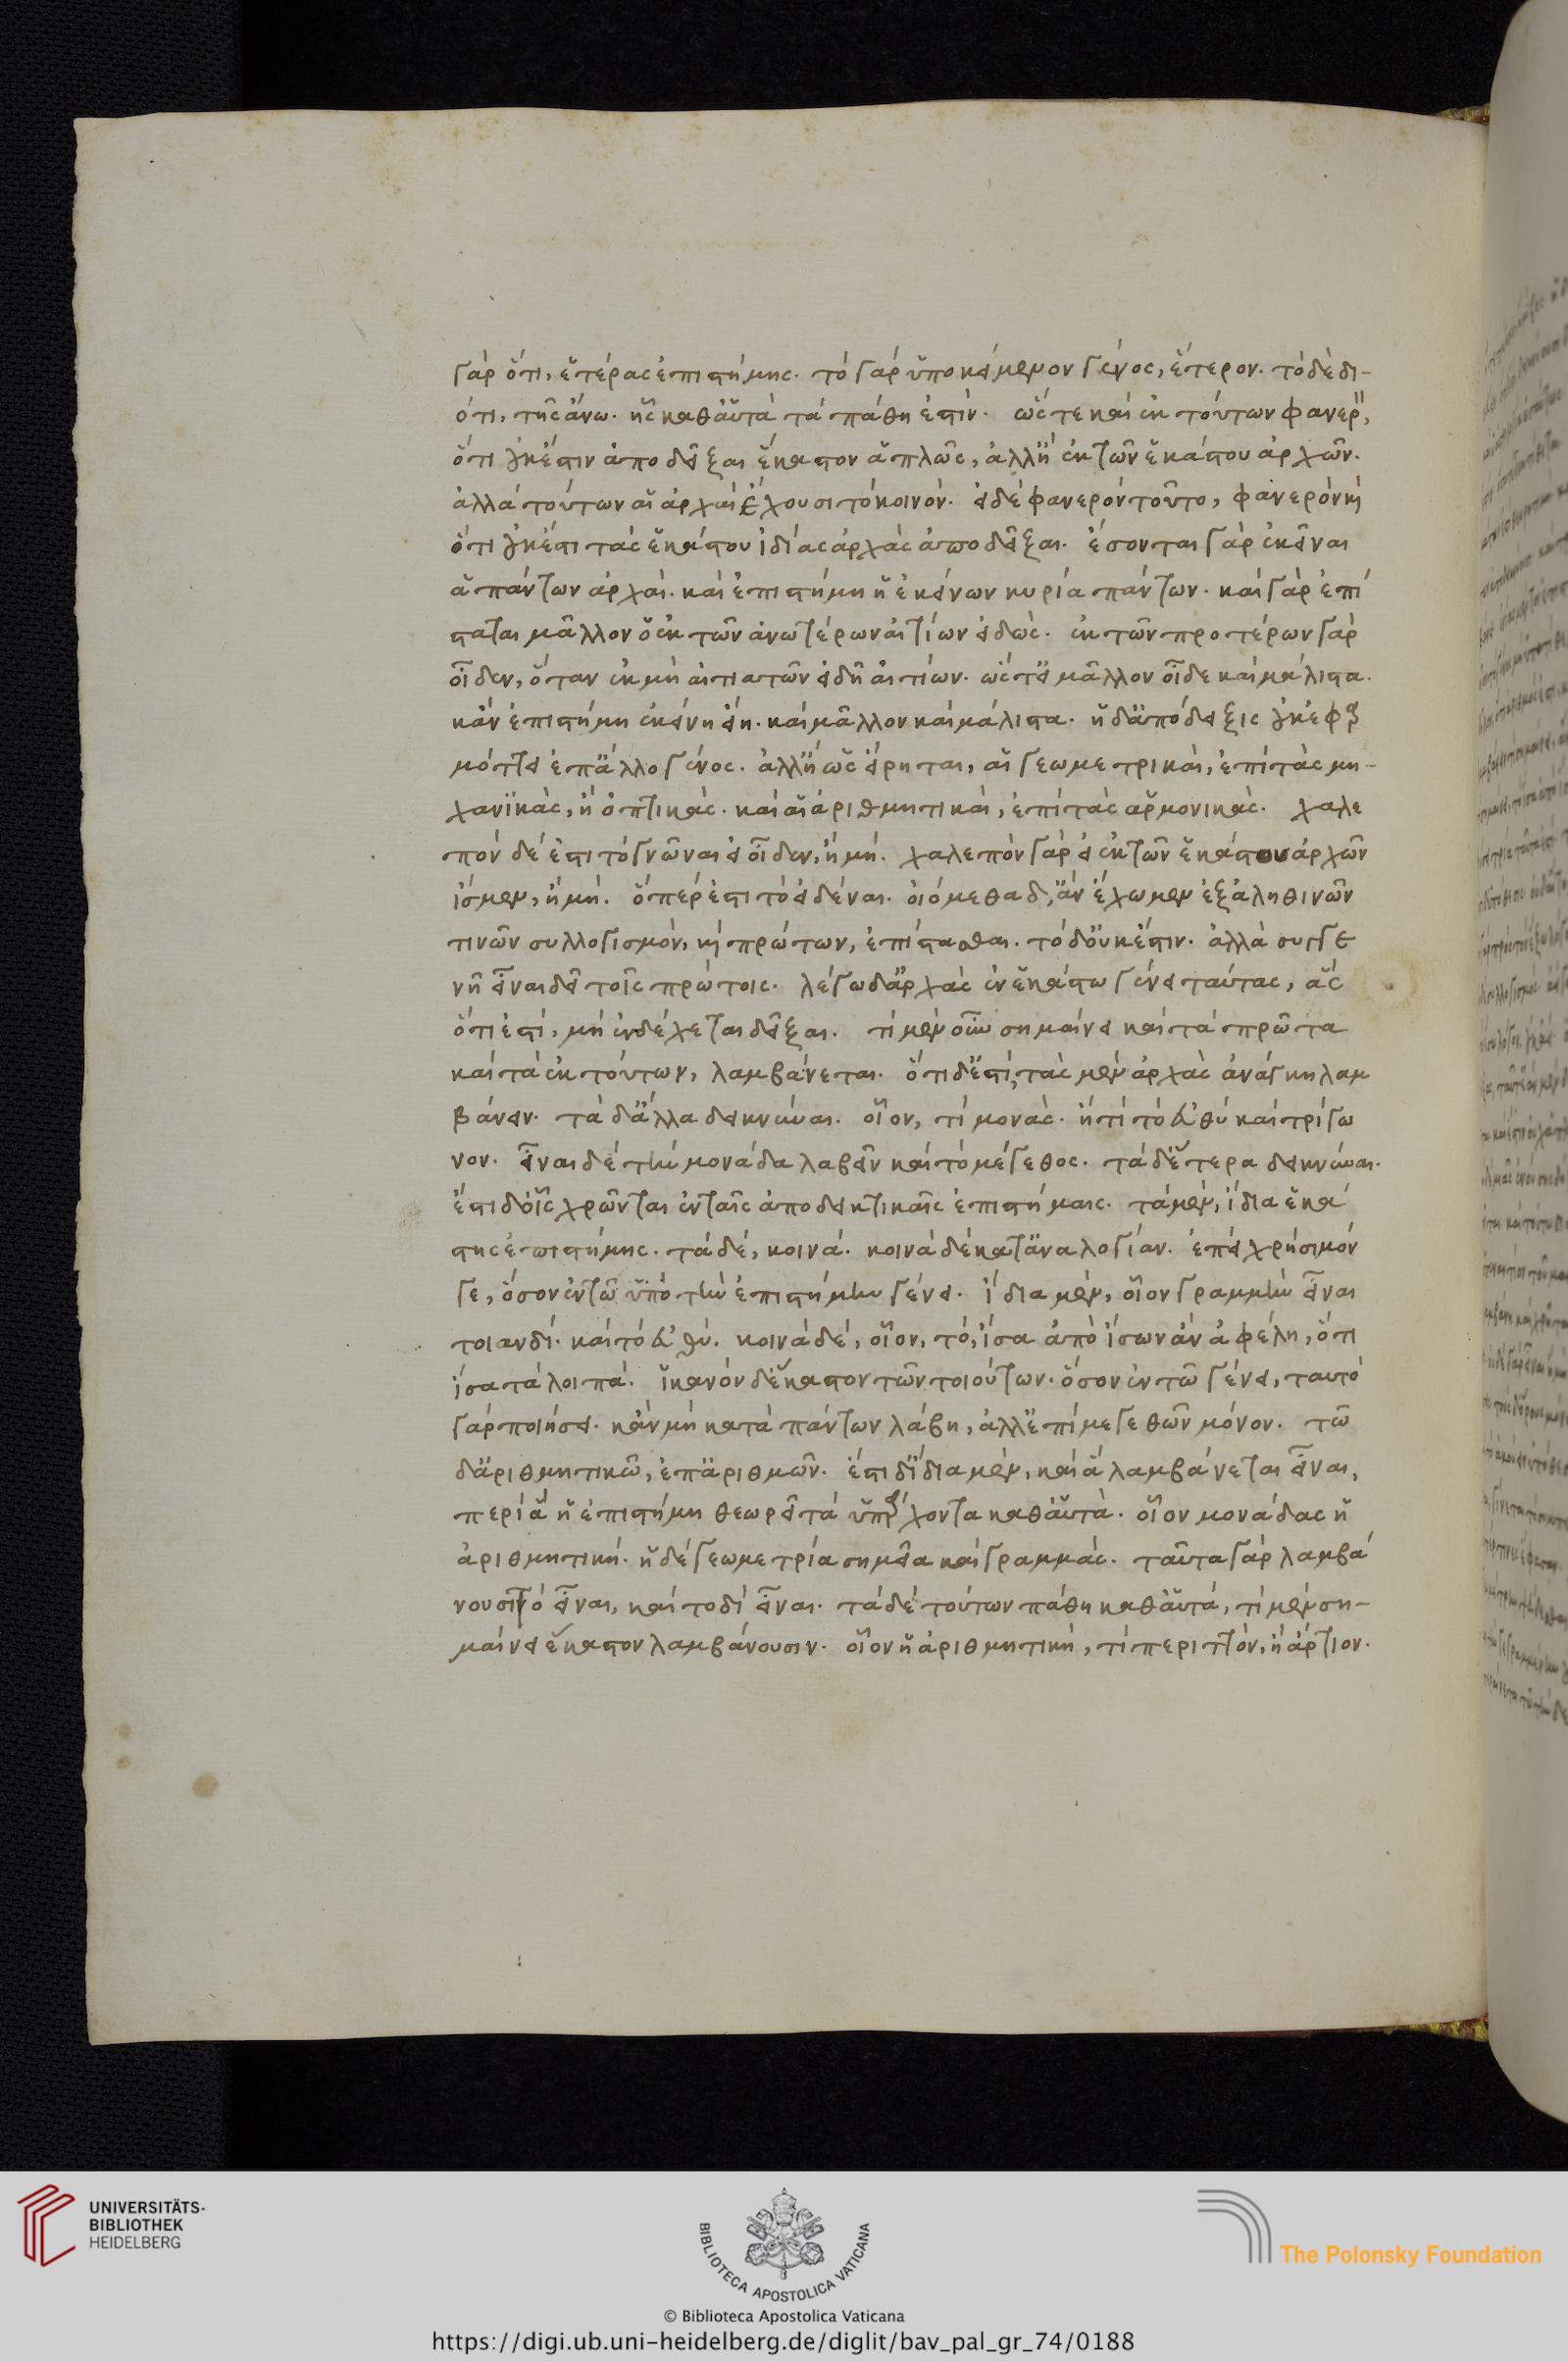 γὰρ ὅτι, ἑτέρας ἐπιστήμης. τὸ γὰρ ὑποκείμενον γένος, ἕτερον. τὸ δὲ δι-
ότι, τῆς ἄνω. ἧς καθ' αὑτὰ τὰ πάθη ἐστίν. ὥστε καὶ ἐκ τούτων φανερ,
ὅτι οὐκ ἔστιν ἀποδεῖξαι ἕκαστον ἁπλῶς, ἀλλ' ἢ ἐκ τῶν ἑκάστου ἀρχῶν.
ἀλλὰ τούτων αἱ ἀρχαὶ ἔχουσι τὸ κοινόν. εἰ δὲ φανερὸν τοῦτο, φανερὸν κὶ
ὅτι οὐκ ἔστι τὰς ἑκάστου ἰδίας ἀρχὰς ἀποδεῖξαι. ἔσονται γὰρ ἐκεῖναι
ἁπάντων ἀρχαί. καὶ ἐπιστήμη ἡ ἐκείνων κυρία πάντων. καὶ γὰρ ἐπί
σταται μᾶλλον ὁ ἐκ τῶν ἀνωτέρων αἰτίων εἰδώς. ἐκ τῶν προτέρων γὰρ
οἶδεν, ὅταν ἐκ μὴ αἰτιατῶν εἰδῇ αἰτίων. ὥστ' εἰ μᾶλλον οἶδε καὶ μάλιστα.
κἂν ἐπιστήμη ἐκείνη εἴη. καὶ μᾶλλον καὶ μάλιστα. ἡ δ' ἀπόδειξις οὐκ ἐφαρ
μόττει ἐπ' ἄλλο γένος. ἀλλ' ἢ ὡς εἴρηται, αἱ γεωμετρικαὶ, ἐπὶ τὰς μη-
χανϊκὰς, ἢ ὀπτικάς. καὶ αἱ ἀριθμητικαὶ, ἐπὶ τὰς ἁρμονικάς. χαλε
πὸν δέ ἐστι τὸ γνῶναι εἰ οἶδεν, ἢ μή. χαλεπὸν γὰρ εἰ ἐκ τῶν ἑκάστου ἀρχῶν
ἴσμεν, ἢ μή. ὅπερ ἐστὶ τὸ εἰδέναι. οἰόμεθα δ', ἂν ἔχωμεν ἐξ ἀληθινῶν
τινῶν συλλογισμὸν, κὶ πρώτων, ἐπίστασθαι. τὸ δ' οὐκ ἔστιν. ἀλλὰ συγγε
νῆ εἶναι δεῖ τοῖς πρώτοις. λέγω δ' ἀρχὰς ἐν ἑκάστω γένει ταύτας, ἃς
ὅτι ἐστὶ, μὴ ἐνδέχεται δεῖξαι. τί μὲν οὖν σημαίνει καὶ τὰ πρῶτα
καὶ τὰ ἐκ τούτων, λαμβάνεται. ὅτι δ' ἔστι, τὰς μὲν ἀρχὰς ἀνάγκη λαμ
βάνειν. τὰ δ' ἄλλα δεικνύναι. οἷον, τί μονάς. ἢ τί τὸ εὐθὺ καὶ τρίγω
νον. εἶναι δὲ τὴν μονάδα λαβεῖν καὶ τὸ μέγεθος. τὰ δ' ἕτερα δεικνύναι.
ἔστι δ' οἷς χρῶνται ἐν ταῖς ἀποδεικτικαῖς ἐπιστήμαις. τὰ μὲν, ἴδια ἑκά
στης ἐπιστήμης. τὰ δὲ, κοινά. κοινὰ δὲ κατ' ἀναλογίαν. ἐπεὶ χρήσιμόν
γε, ὅσον ἐν τῶ ὑπὸ τὴν ἐπιστήμην γένει. ἴδια μὲν, οἷον γραμμὴν εἶναι
τοιανδί. καὶ τὸ εὐθύ. κοινὰ δὲ, οἷον, τὸ, ἴσα ἀπὸ ἴσων ἂν ἀφέλη, ὅτι
ἴσα τὰ λοιπά. ἱκανὸν δ' ἕκαστον τῶν τοιούτων. ὅσον ἐν τῶ γένει, ταυτὸ
γὰρ ποιήσει. κἂν μὴ κατὰ πάντων λάβη, ἀλλ' ἐπὶ μεγεθῶν μόνον. τῶ
δ' ἀριθμητικῶ, ἐπ' ἀριθμῶν. ἔστι δ' ἴδια μὲν, καὶ ἃ λαμβάνεται εἶναι,
περὶ ἃ ἡ ἐπιστήμη θεωρεῖ τὰ ὑπάρχοντα καθ' αὑτά. οἷον μονάδας ἡ
ἀριθμητική. ἡ δὲ γεωμετρία σημεῖα καὶ γραμμάς. ταῦτα γὰρ λαμβά
νουσι τὸ εἶναι, καὶ τοδὶ εἶναι. τὰ δὲ τούτων πάθη καθ' αὑτά, τί μὲν ση-
μαίνει ἕκαστον λαμβάνουσιν. οἷον ἡ ἀριθμητικὴ, τί περιττὸν, ἢ ἄρτιον.
UNIVERSITÄTS-
BIBLIOTHEK
HEIDELBERG
BIBLIOTECA APOSTOLICA VATICANA
The Polonsky Foundation
© Biblioteca Apostolica Vaticana
https://digi.ub.uni-heidelberg.de/diglit/bav_pal_gr_74/0188